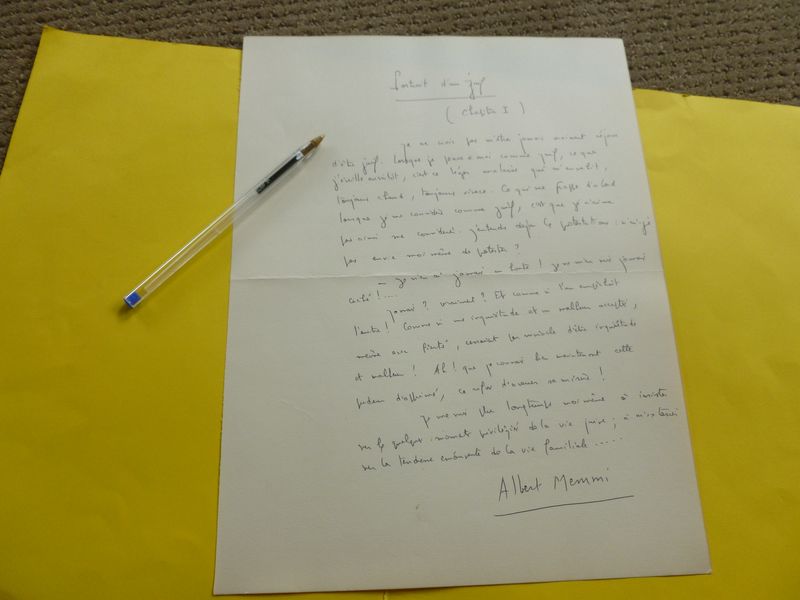 Portrait d'un juif
(Chapitre I)
Je ne crois pas m'être jamais vraiment réjoui
d'être juif. Lorsque je pense à moi comme juif, ce que
j'éveille aussitôt, c'est ce léger malaise qui m'envahit,
toujours chaud, toujours vivace. Ce qui me frappe d'abord
lorsque je me considère comme juif, c'est que je n'aime
pas ainsi me considérer. J'entends déjà les protestations : n'ai-je
pas envie moi-même de protester ?
— Je n'en ai jamais eu honte ! Je ne m'en suis jamais
caché ! ....
Jamais ? vraiment ? Et comme si l'un empêchait
l'autre ! Comme si une inquiétude et un malheur acceptés,
même avec fierté, cessaient par miracle d'être inquiétude
et malheur ! Ah ! que je connais bien maintenant cette
pudeur d'opprimé, ce refus d'avouer sa misère !
Je me suis plu longtemps moi-même à insister
sur les quelques moments privilégiés de la vie juive ; à m'attarder
sur la tendresse de la vie familiale .....
Albert Memmi